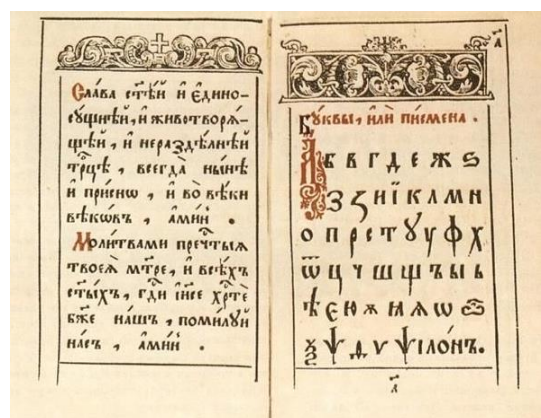 Сла́ва ст҃ѣ́й и҆ є҆дино-
сꙋ́щнѣй, и҆ животворѧ́-
щей, и҆ нераздѣ́лнѣй
трⷪ҇цѣ, всегда̀ ны́нѣ
и҆ при́снѡ, и҆ во вѣ́ки
вѣкѡ́въ, а҆ми́нь.
Моли́твами пречⷭ҇тыѧ
твоеѧ̀ мт҃ре, и҆ всѣ́хъ
ст҃ы́хъ, гдⷭ҇и і҆и҃се хрⷭ҇те
бж҃е на́шъ, поми́лꙋй
на́съ, а҆ми́нь.
а҃
Бꙋ́квы, и҆лѝ пи́смена.
А Б В Г Д Е Ж Ѕ
З Ꙁ И Ї К Л М Н
О П Р С Т Ѹ Ꙋ Ф Х
Ѿ Ц Ч Ш Щ Ъ Ы Ь
Ѣ Є Ю Ѫ И Ѧ Ѡ
Ѯ Ѱ Д Ѵ Ѱїло́нъ.